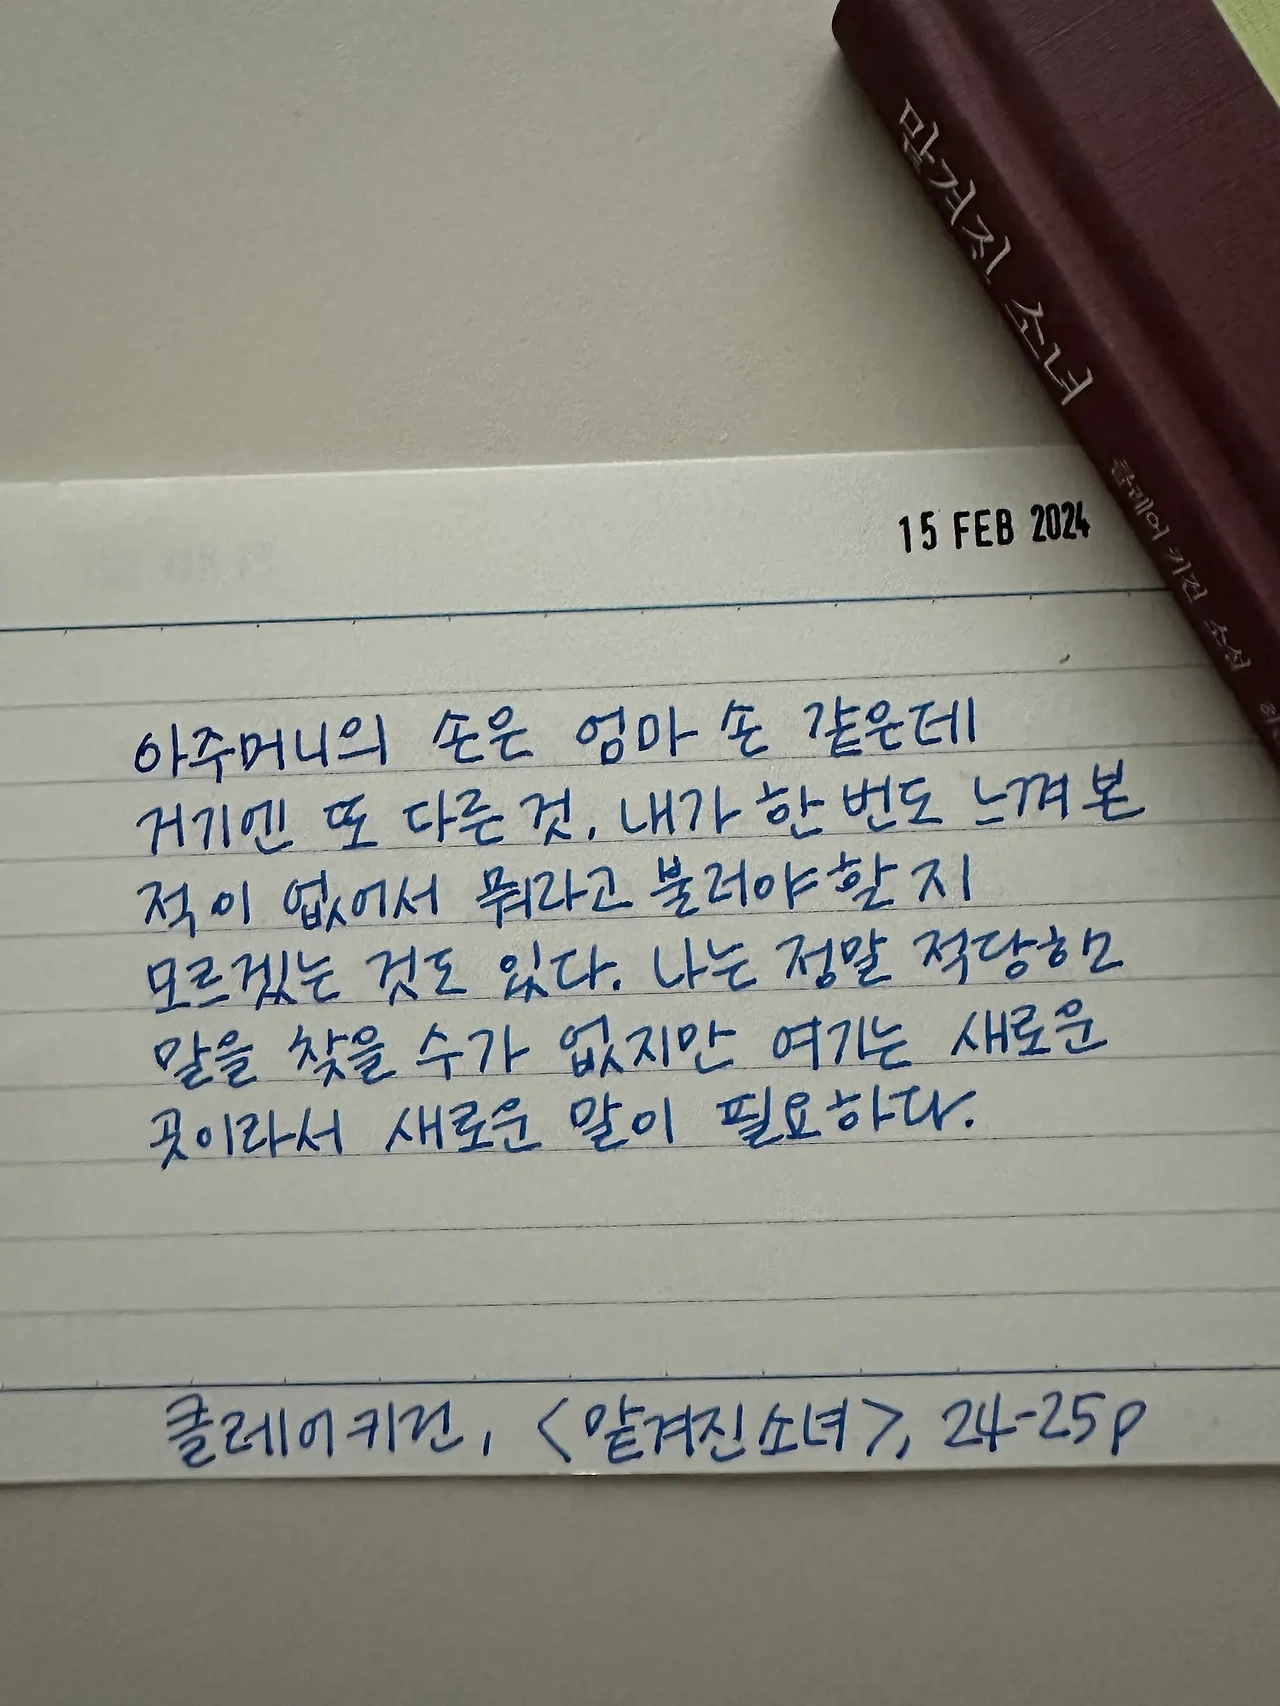 맡겨진 소녀
클레어 키건 소설
15 FEB 2024
아주머니의 손은 엄마 손 같은데
거기엔 또 다른 것, 내가 한 번도 느껴 본
적이 없어서 뭐라고 불러야 할 지
모르겠는 것도 있다. 나는 정말 적당한
말을 찾을 수가 없지만 여기는 새로운
곳이라서 새로운 말이 필요하다.
클레어 키건, <맡겨진 소녀>, 24-25p